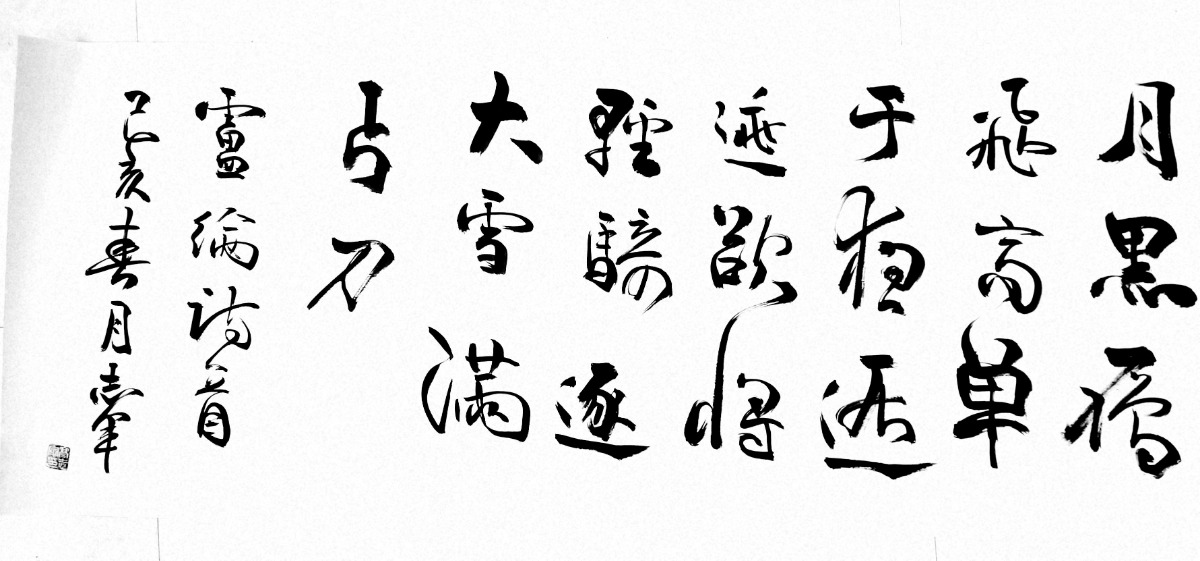 月黑鴈
飛高单
于夜遁
逃欲將
輕騎逐
大雪滿
弓刀
盧綸詩首
己亥春月志軍